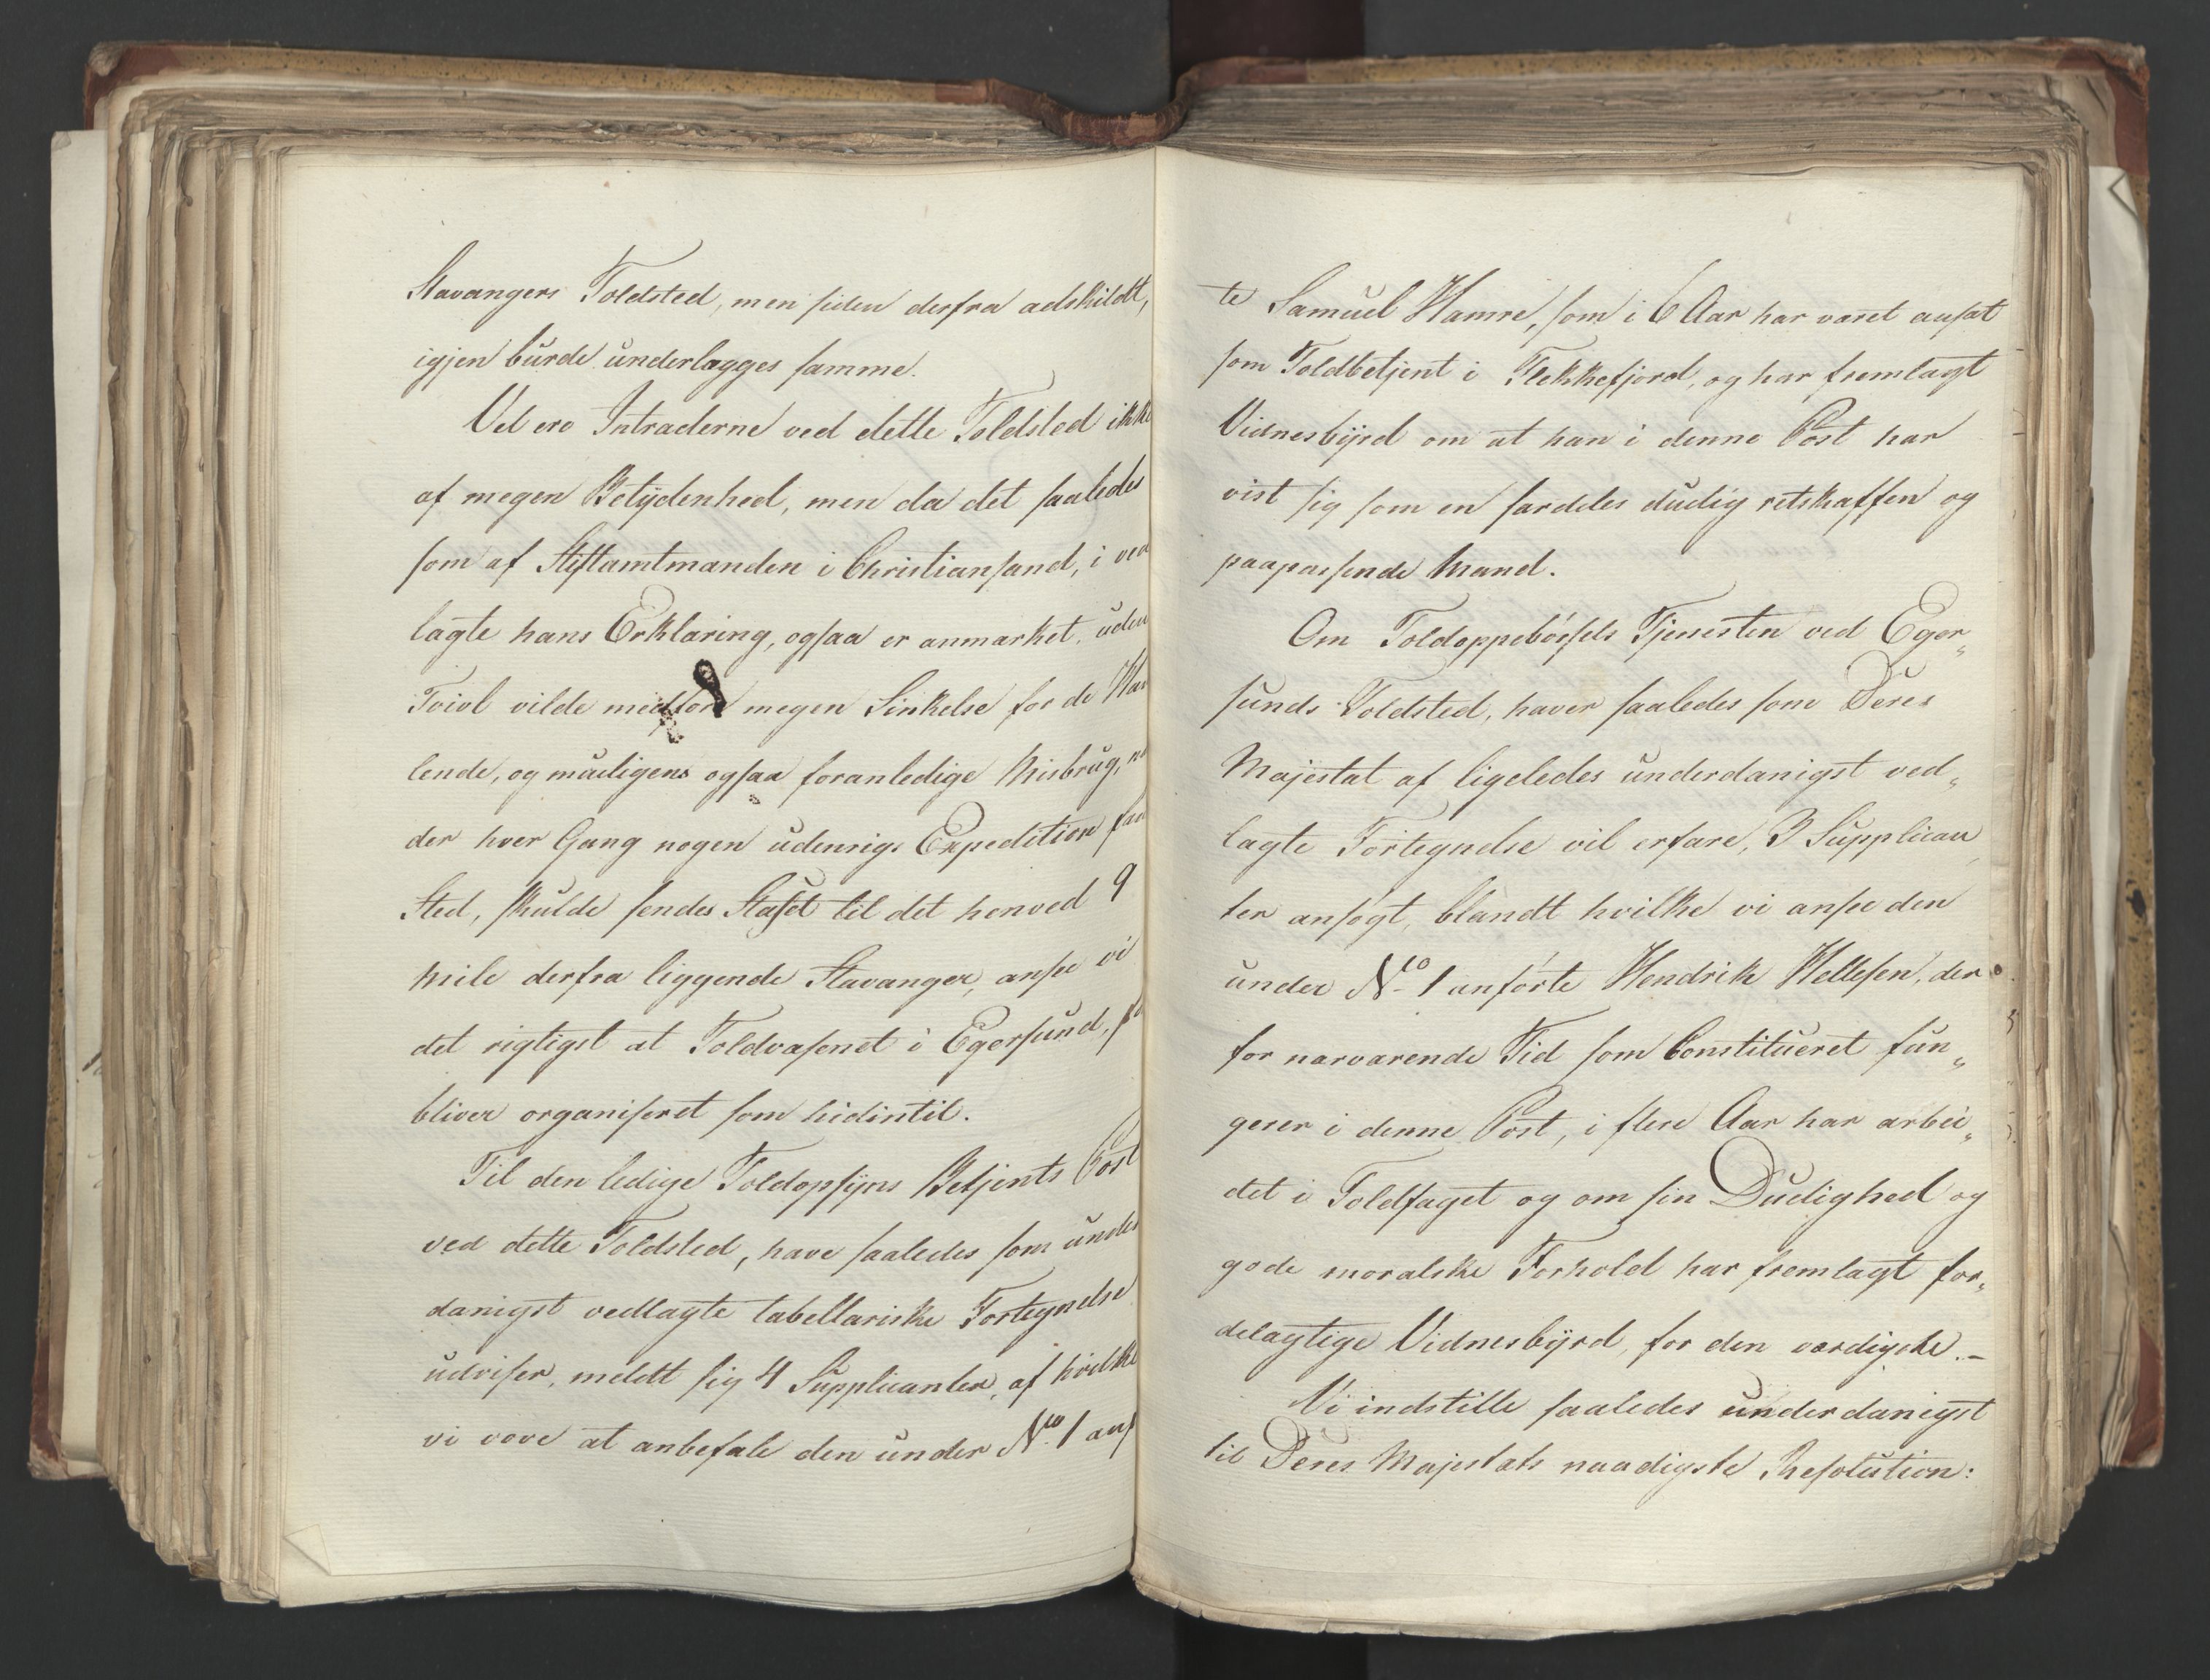 Stavangers Toldsted, men siden derfra adskildt,
igjen burde underlægges samme.
Vel ere Intraderne ved dette Toldsted ikke
af megen Betydenhed, men da det saaledes
som af Stiftamtmanden i Christiansand, i ved
lagte hans Erklæring, ogsaa er anmærket, uden
Tvivl vilde medføre megen Sinkelse for de Han
lende, og mueligens ogsaa foranledige Misbrug,
der hver Gang nogen udenrigs Expedition fan
Sted, skulde sendes Stafet til det henved 9
Mile derfra liggende Stavanger, ansee vi
det rigtigst at Toldvæsenet i Egersund,
bliver organiseret som hidintil.
Til den ledige Toldopsyns Betjents Post
ved dette Toldsted, have saaledes som under
danigst vedlagte tabellariske Fortegnelse
udviser, meldt sig 4 Supplicanter, af hvilke
vi vove at anbefale den under No 1 anf
te Samuel Hamre, som i 6 Aar har været ansat
som Toldbetjent i Flekkefjord, og har fremlagt
Vidnesbyrd om at han i denne Post har
vist sig som en særdeles duelig retskaffen og
paapassende Mand.
Om Toldoppebørsels Tjenesten ved Eger„
sunds Toldsted, haver saaledes som Deres
Majestæt af ligeledes underdanigst ved„
lagte Fortegnelse vil erfare, 3 Supplican„
ter ansøgt, blandt hvilke vi ansee den
under No 1 anførte Hendrik Hellesen, der
for nærværende Tid som Constitueret fun„
gerer i denne Post, i flere Aar har arbei„
det i Toldfaget og om sin Duelighed og
gode moralske Forhold har fremlagt for„
delagtige Vidnesbyrd, for den værdigste.–
Vi indstille saaledes underdanigst
til Deres Majestæts naadigste Resolution: